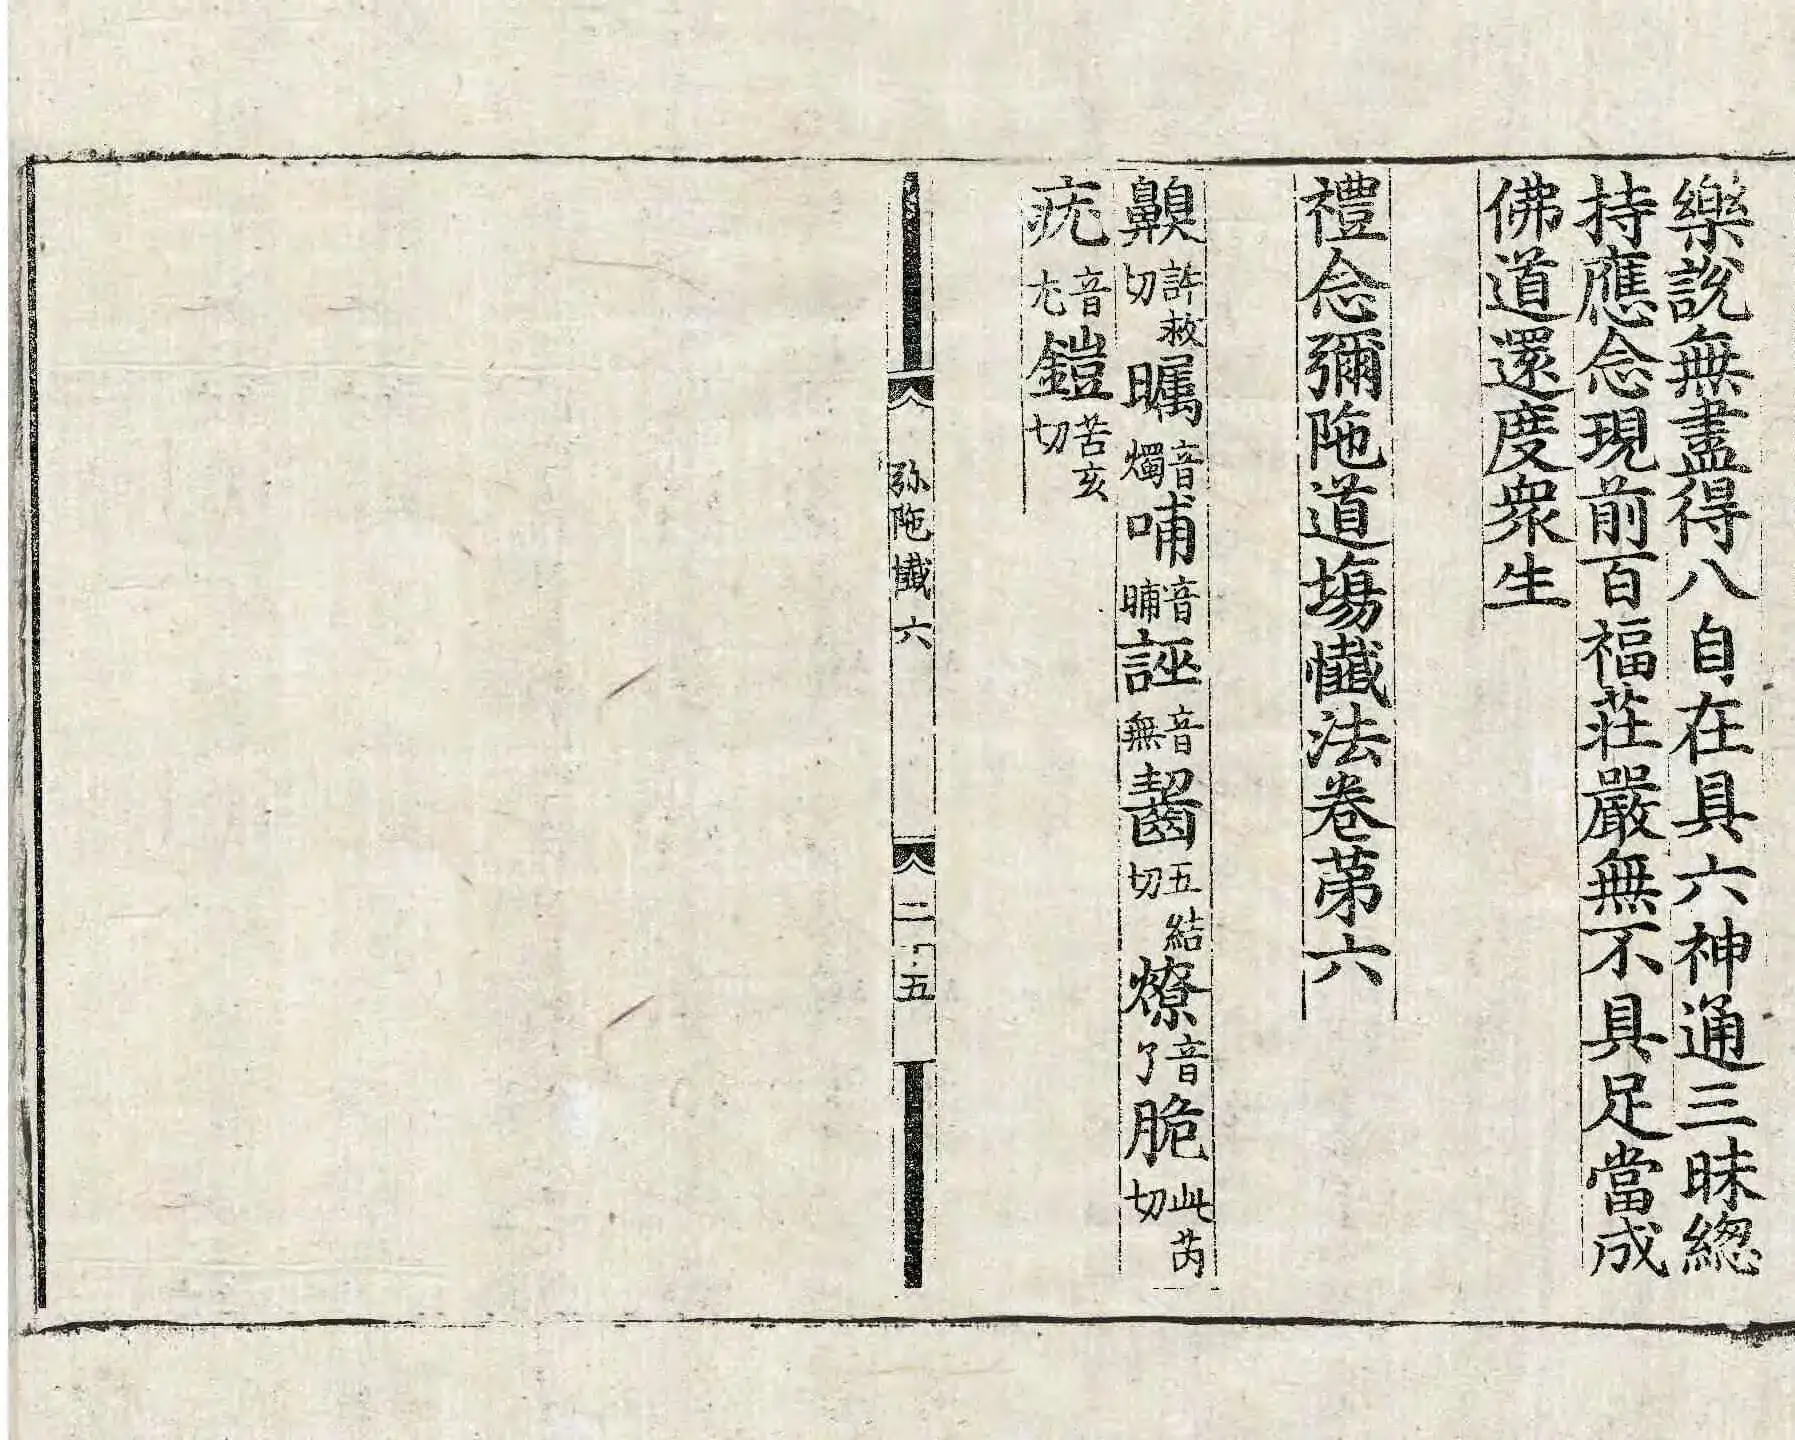 樂說無盡得八自在具六神通三昧緫
持應念現前百福莊嚴無不具足當成
佛道還度衆生
禮念彌陁道塲懺法卷苐六
齅許救切矚音燭哺音晡誣音無齧五結切燎音了脆此芮切
疣音尤鎧苦亥切
弥陁懺六 二十五